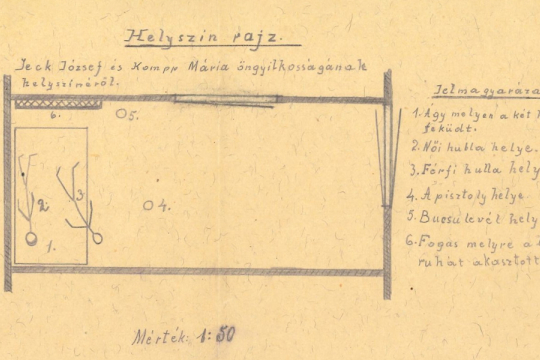 Helyszín rajz.
Jeck József és Kompp Mária öngyilkosságának
helyszínéről.
6.
5.
2.
3
4.
1.
Mérték: 1:50
Jelmagyaráza
1. Ágy melyen a két h
feküdt.
2. Női hulla helye.
3. Férfi hulla hely
4. A pisztoly helye
5. Bucsúlevél hely
6. Fogas melyre a
ruhát akasztott